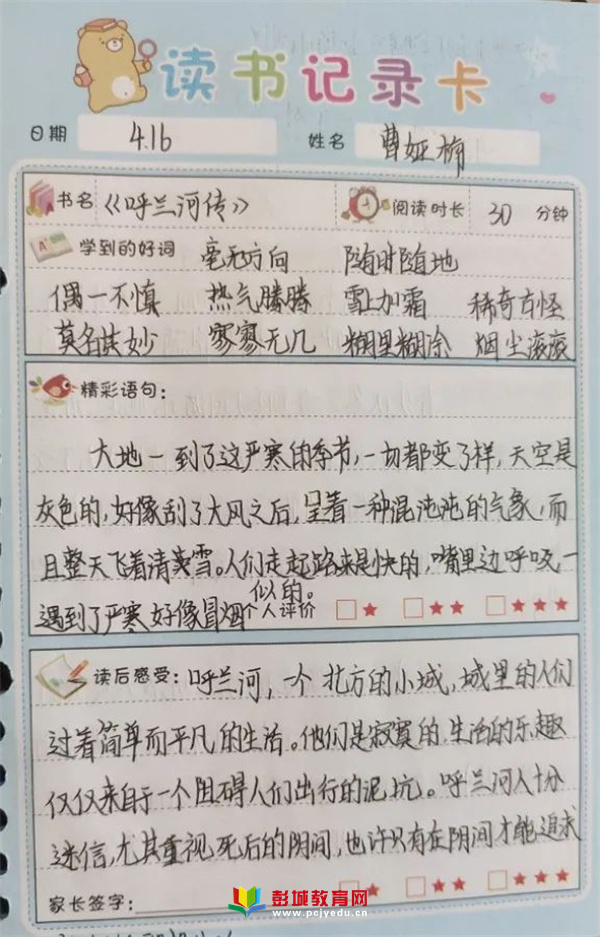 读书记录卡
日期 4.16 姓名 曹娅楠
书名 《呼兰河传》 阅读时长 30 分钟
学到的好词 毫无方向 随时随地
偶一不慎 热气腾腾 雪上加霜 稀奇古怪
莫名其妙 寥寥无几 糊里糊涂 烟尘滚滚
精彩语句：
大地一到了这严寒的季节，一切都变了样，天空是
灰色的，好像刮了大风之后，呈着一种混沌沌的气象，而
且整天飞着清雪。人们走起路来是快的，嘴里边呼吸，一
遇到了严寒好像冒烟似的。
个人评价
读后感受：呼兰河，一个北方的小城，城里的人们
过着简单而平凡的生活。他们是寂寞的，生活的乐趣
仅仅来自于一个阻碍人们出行的泥坑。呼兰河人十分
迷信，尤其重视死后的阴间，也许只有在阴间才能追求
家长签字：
彭城教育网
www.pcjyedu.cn